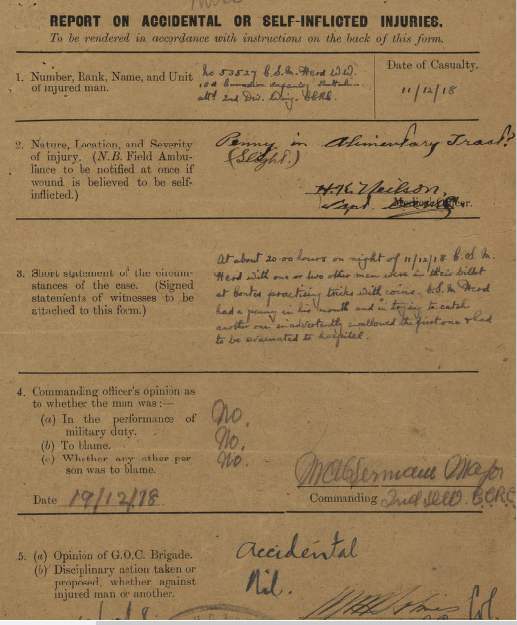 REPORT ON ACCIDENTAL OR SELF-INFLICTED INJURIES.
To be rendered in accordance with instructions on the back of this form.
1. Number, Rank, Name, and Unit of injured man.
No 53527 C.S.M. Herd W.W.
10th Canadian
attd 2nd Div. Wing. C.C.R.C.
Date of Casualty.
11/12/18
2. Nature, Location, and Severity
of injury. (N.B. Field Ambu-
lance to be notified at once if
wound is believed to be self-
inflicted.)
Penny in Alimentary Tract?
(Slight.)
H.K. Neilson,
Capt.
Medical Officer.
3. Short statement of the circum-
stances of the case. (Signed
statements of witnesses to be
attached to this form.)
At about 20.00 hours on night of 11/12/18 C.S.M.
Herd with one or two other men were in their billet
at practising tricks with coins. C.S.M. Herd
had a penny in his mouth and in trying to catch
another one inadvertently swallowed the first one & had
to be evacuated to hospital.
4. Commanding officer's opinion as
to whether the man was :—
(a) In the performance of
military duty.
No.
(b) To blame.
No.
(c) Whether any other per
son was to blame.
No.
Major
Date 19/12/18
Commanding 2nd C.C.R.C.
5. (a) Opinion of G.O.C. Brigade.
Accidental
(b) Disciplinary action taken or
proposed, whether against
injured man or another.
Nil.
Col.